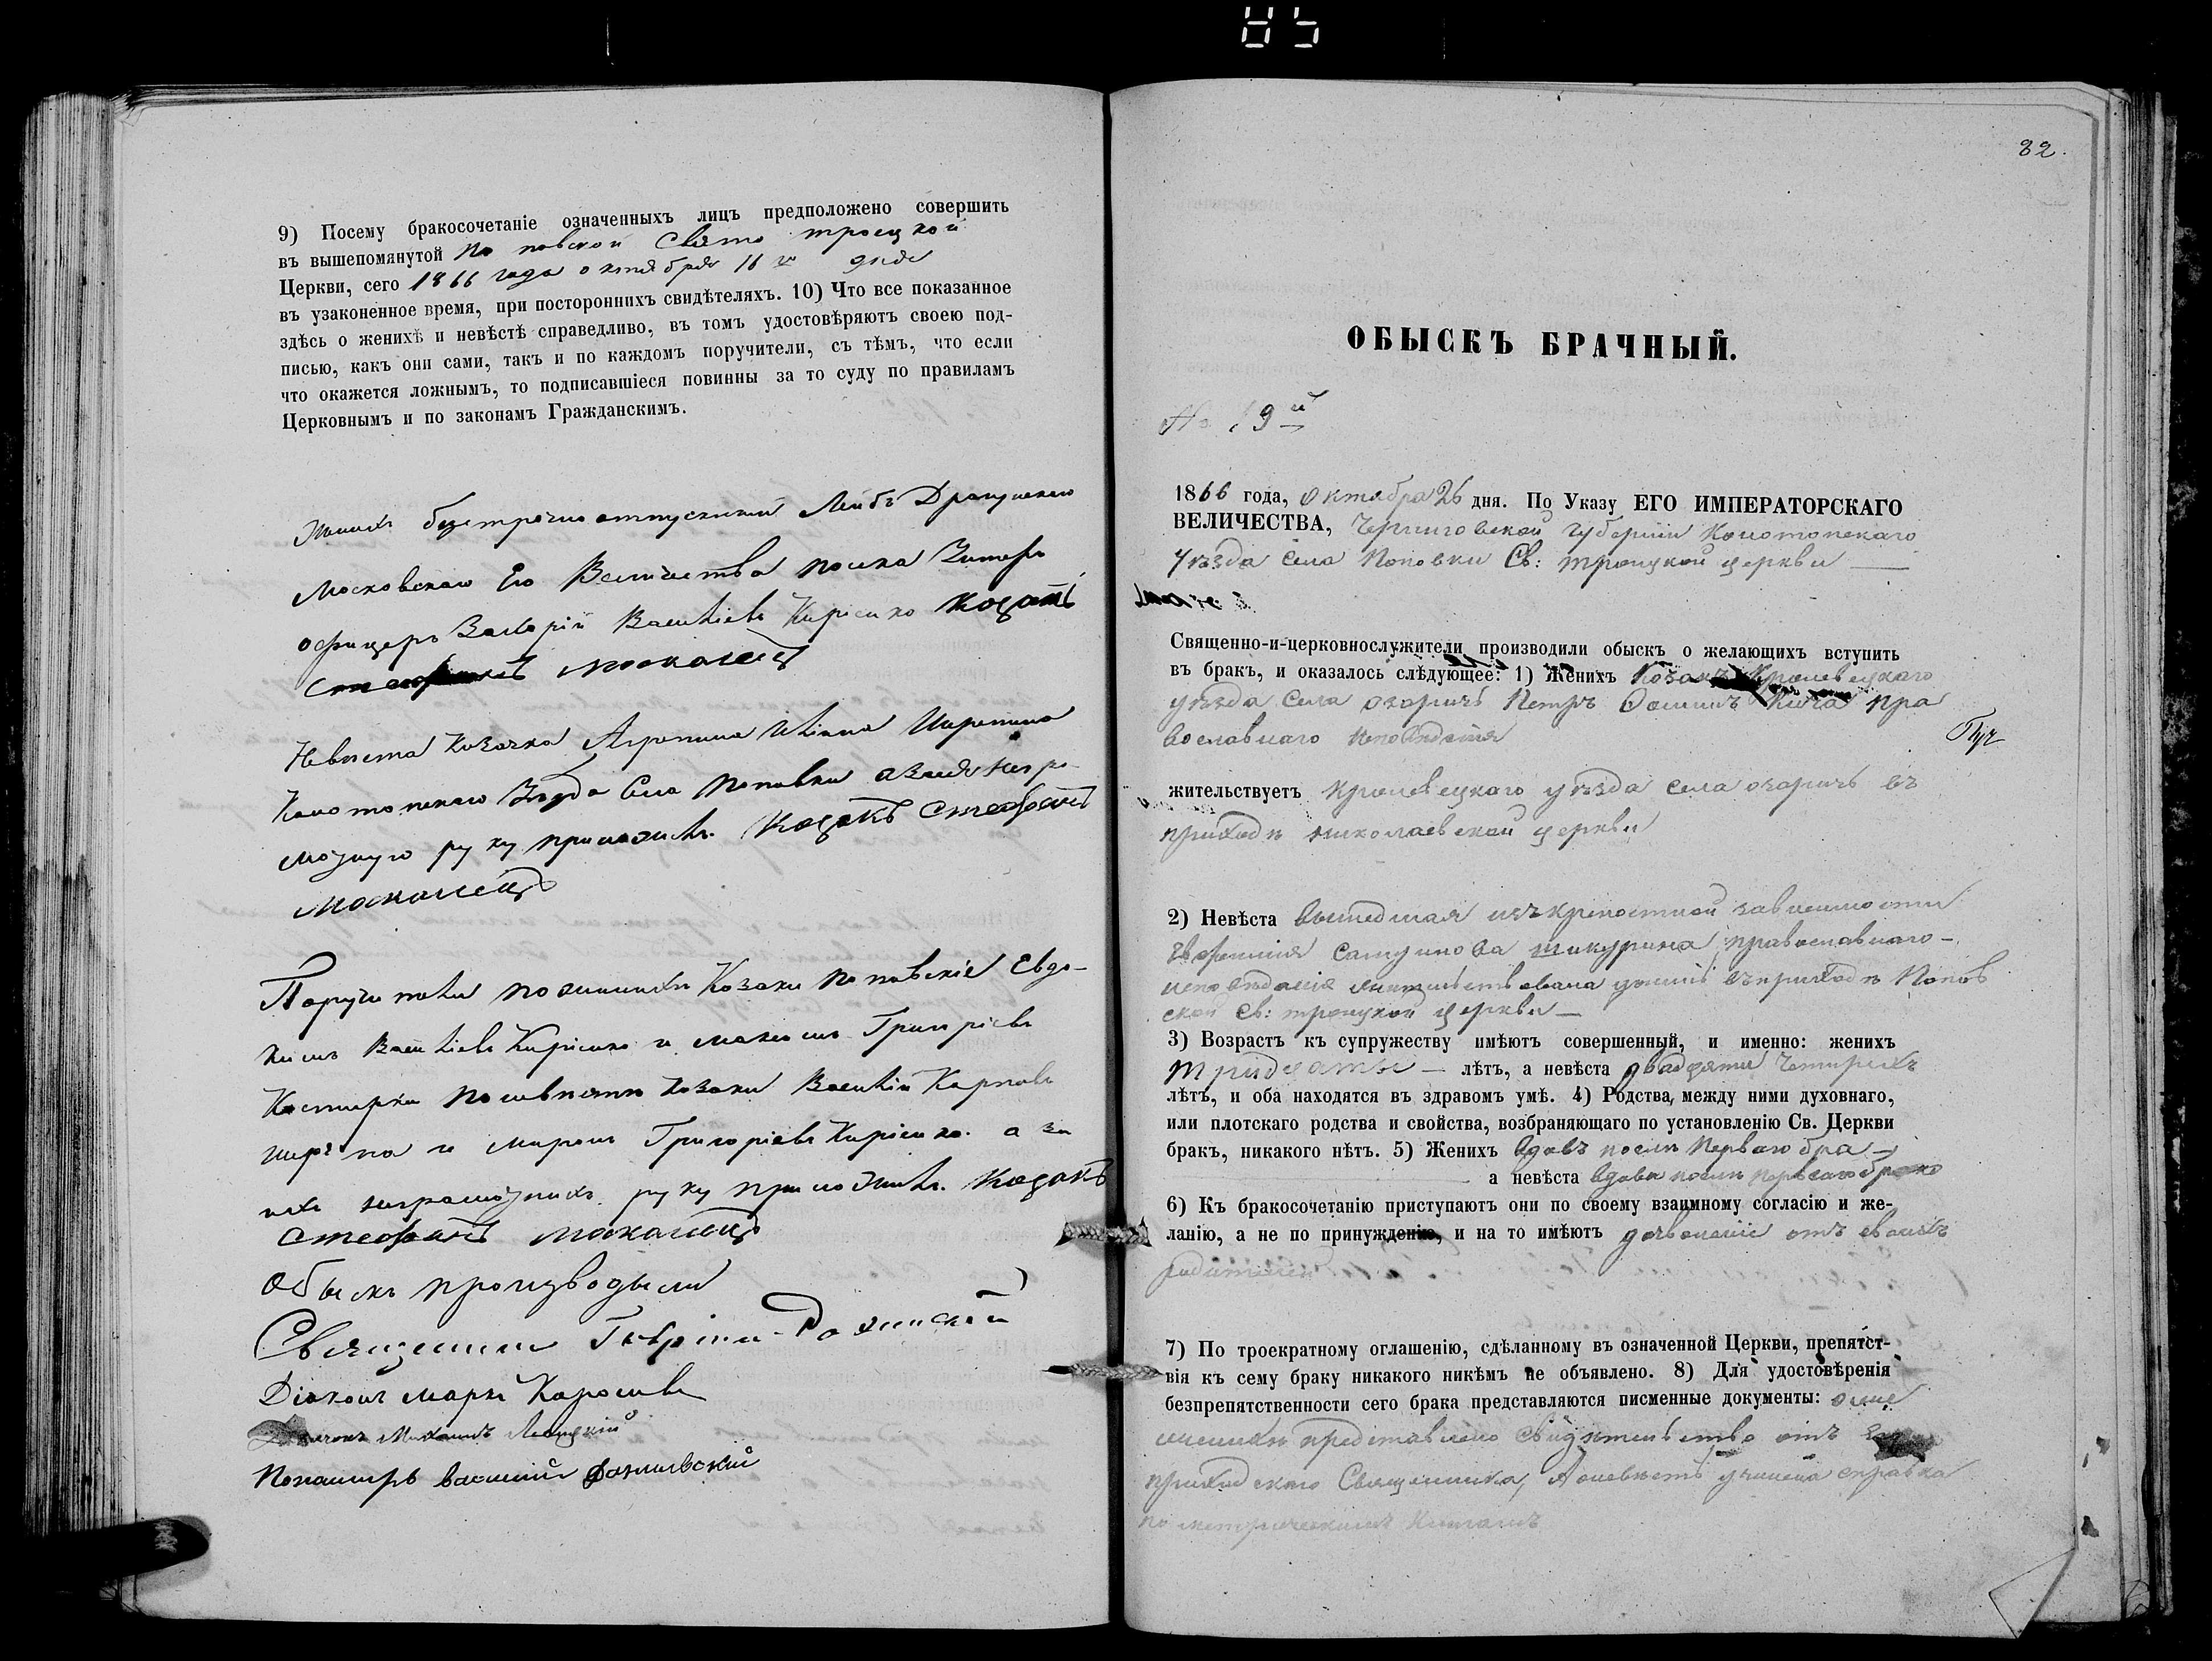 85
9) Посему бракосочетаніе означенныхъ лицъ предположено совершить
въ вышепомянутой По повской Свято троецкой
Церкви, сего 1866 года октября 16 го дня
въ узаконенное время, при постороннихъ свидѣтеляхъ. 10) Что все показанное
здѣсь о женихѣ и невѣстѣ справедливо, въ томъ удостовѣряютъ своею под-
писью, какъ они сами, такъ и по каждомъ поручители, съ тѣмъ, что если
что окажется ложнымъ, то подписавшіеся повинны за то суду по правиламъ
Церковнымъ и по законамъ Гражданскимъ.
Женихъ безсрочно отпускной Лейбъ Драгунскаго
Московскаго Его Величества полка Унтеръ
офицеръ Василіевъ Кирієнко Козакъ
Москалецъ
Невѣста Козачка Агрипина
Конотопскаго уѣзда Села Поповки а за ея негра-
мотную руку приложилъ Козакъ Стефанъ
Москалецъ
Поручители по женихѣ Козаки Поповскіе Евдо-
кимъ Василіевъ Кирієнко и Максимъ Григоріевъ
по невѣстѣ Козаки Василій Карповъ
и Миронъ Григоріевъ Кирієнко. а за
ихъ неграмотныхъ руку приложилъ Козакъ
Стефанъ Москалецъ
Обыскъ производили
Священникъ
Діаконъ Маркъ
Михаилъ
Пономарь Василій Данилевскій
82.
ОБЫСКЪ БРАЧНЫЙ.
№ 19й
1866 года, Октября 26 дня. По Указу ЕГО ИМПЕРАТОРСКАГО
ВЕЛИЧЕСТВА, Черниговской губерніи Конотопскаго
уѣзда Села Поповки Св: троицкой церкви
Священно-и-церковнослужители производили обыскъ о желающихъ вступить
въ бракъ, и оказалось слѣдующее: 1) Женихъ Козакъ Кролевецкаго
уѣзда Села Озаричъ Петръ пра
вославнаго исповѣданія
жительствуетъ Кролевецкаго уѣзда Села Озаричъ въ
приходѣ николаевской церкви
2) Невѣста вышедшая изъ крепостной зависимости
Евфимия шикурина, православнаго-
исповѣданія въ приходѣ Попов
ской Св: троицкой церкви
3) Возрастъ къ супружеству имѣютъ совершенный, и именно: женихъ
тридцати — лѣтъ, а невѣста двадцати четырехъ
лѣтъ, и оба находятся въ здравомъ умѣ. 4) Родства между ними духовнаго,
или плотскаго родства и свойства, возбраняющаго по установленію Св. Церкви
бракъ, никакого нѣтъ. 5) Женихъ вдовъ послѣ перваго бра-
а невѣста вдова послѣ перваго брака
6) Къ бракосочетанію приступаютъ они по своему взаимному согласію и же-
ланію, а не по принужденію, и на то имѣютъ дозволеніе отъ своихъ
родителей
7) По троекратному оглашенію, сдѣланному въ означенной Церкви, препятст-
вія къ сему браку никакого никѣмъ не объявлено. 8) Для удостовѣренія
безпрепятственности сего брака представляются писменные документы: о же
нихѣ представлено свидѣтельство отъ
приходскаго Священника, А о невѣстѣ учинена справка
по метрическимъ книгамъ